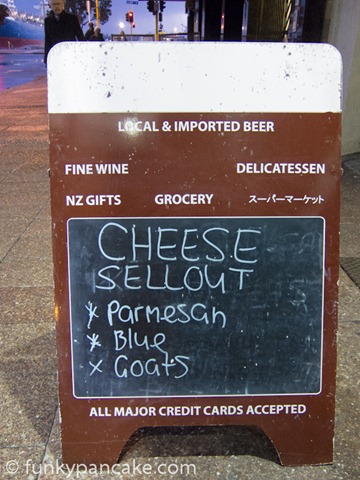 LOCAL & IMPORTED BEER
FINE WINE DELICATESSEN
NZ GIFTS GROCERY スーパーマーケット
CHEESE
SELLOUT
* Parmesan
* Blue
x Goats
ALL MAJOR CREDIT CARDS ACCEPTED
© funkypancake.com